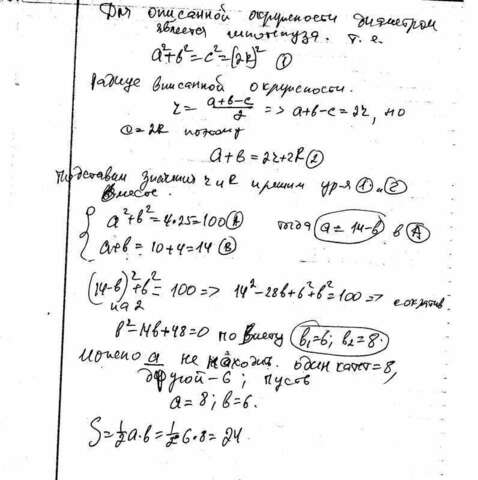 Для описанной окружности диаметром
является гипотенуза. т.е.
a²+b²=c²=(2R)² ①
Радиус вписанной окружности.
r=(a+b-c)/2 => a+b-c=2r, но
c=2R поэтому
a+b=2r+2R ②
Подставим значения r и R и решим ур-я ① и ②
вместе.
{ a²+b²=4·25=100 Ⓐ тогда a=14-b в Ⓐ
a+b=10+4=14 Ⓑ
(14-b)²+b²=100 => 14²-28b+b²+b²=100 =>
на 2
b²-14b+48=0 по Виету b₁=6; b₂=8.
Можно a не находить. один катет=8,
другой-6; пусть
a=8; b=6.
S=½a·b=½6·8=24